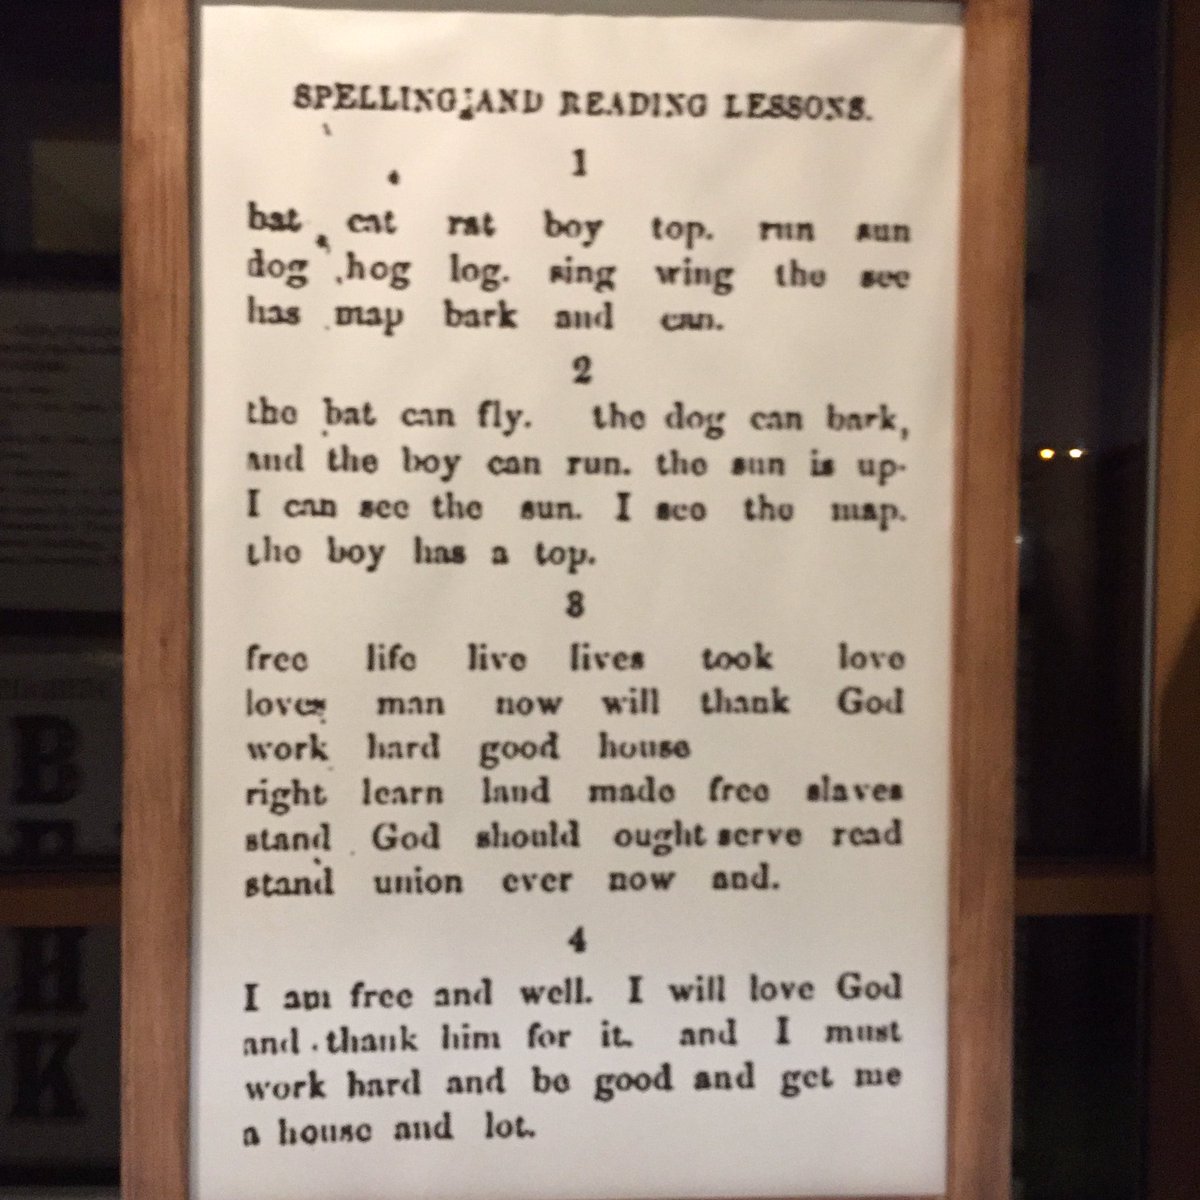 SPELLING AND READING LESSONS.
1
bat cat rat boy top. run sun
dog hog log. sing wing the see
has map bark and can.
2
the bat can fly. the dog can bark,
and the boy can run. the sun is up.
I can see the sun. I see the map.
the boy has a top.
3
free life live lives took love
loves man now will thank God
work hard good house
right learn land made free slaves
stand God should ought serve read
stand union ever now and.
4
I am free and well. I will love God
and thank him for it. and I must
work hard and be good and get me
a house and lot.
B
H
K